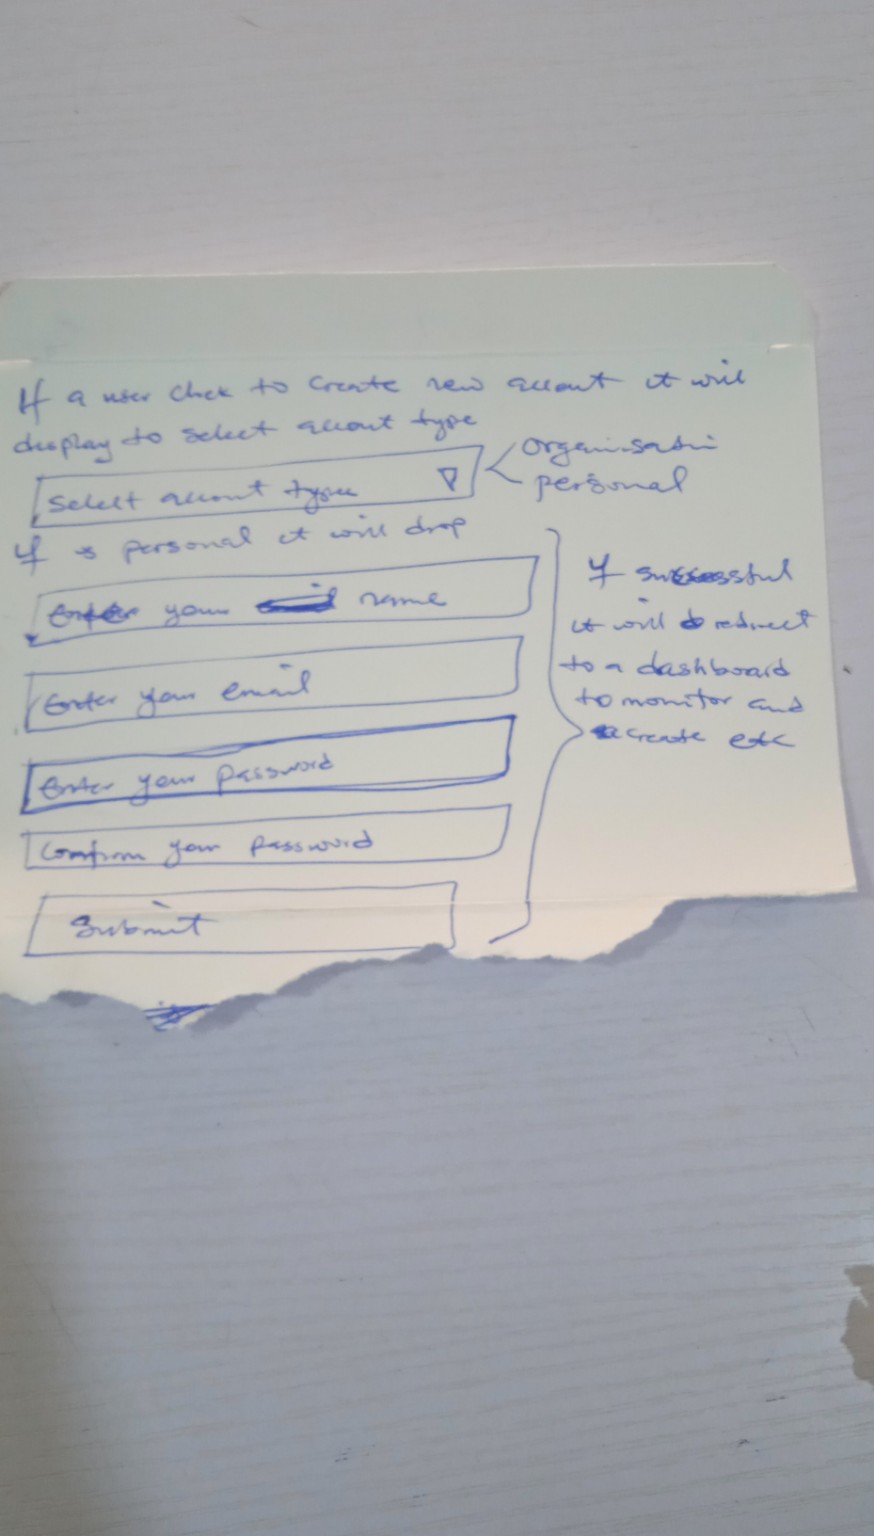 If a user click to create new account it will
display to select account type
Select account type
organisation
personal
If is personal it will drop
Enter your name
Enter your email
Enter your password
Confirm your password
Submit
If successful
it will redirect
to a dashboard
to monitor and
create etc